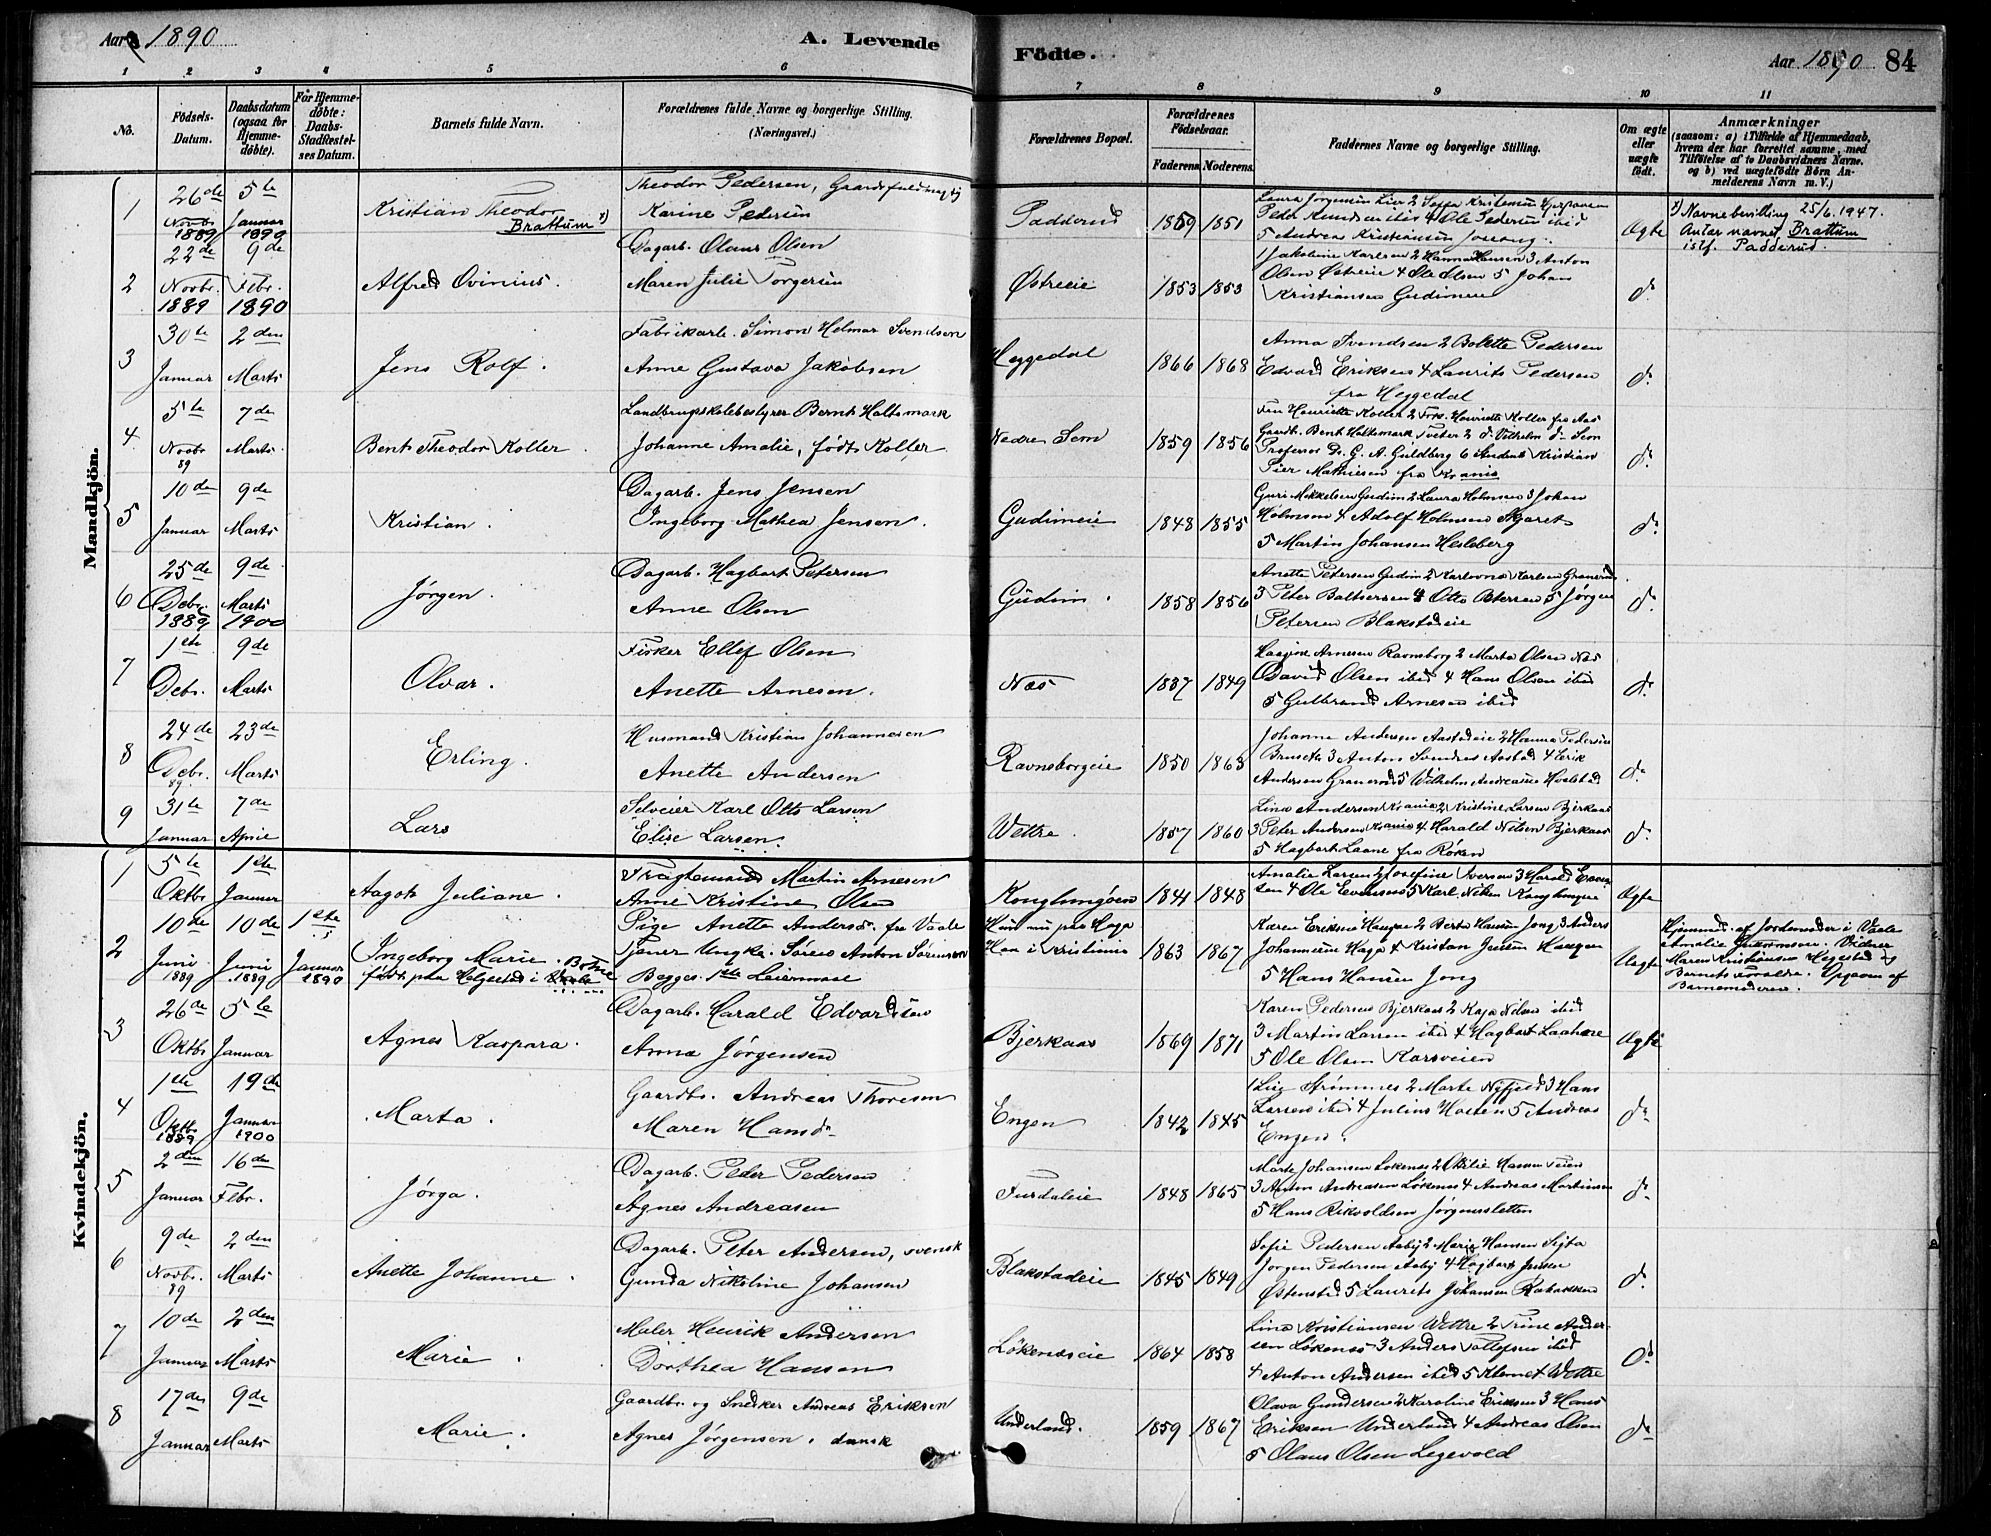 Aar 1890
A. Levende
Födte.
Aar 1890
84
1 2 3 4 5 6 7 8 9 10 11
No.
Födsels-Datum.
Daabsdatum (ogsaa for Hjemme-döbte).
For Hjemme-döbte: Daabs-Stadfæstel-ses Datum.
Barnets fulde Navn.
Forældrenes fulde Navne og borgerlige Stilling. (Næringsvei.)
Forældrenes Bopæl.
Forældrenes Födselsaar.
Faderens. Moderens.
Faddernes Navne og borgerlige Stilling.
Om ægte eller uægte födt.
Anmærkninger
(saasom: a) i Tilfælde af Hjemmedaab, hvem der har forrettet samme, med Tilföielse af to Daabsvidners Navne. og b) ved uægtefödte Börn An-melderens Navn m. V.)
Mandkjön.
1 26de Novbr 1889 5te Januar 1890 Kristian Theodor Brattum x)
Theodor Pedersen,
Karine Pedersen
Padderud 1859 1851
Ægte
x) Navnebevilling 25/6.1947.
Antar navnet Brattum
istf. Padderud.
2 22de Novbr. 1889 9de Febr. 1890 Alfred Ovinius.
Dagarb. Olaus Olsen
Maren Julie Torgersen
Østreeie 1853 1853
1 Jakobine Karlsen 2 Hanna Hansen 3 Anton
Olsen Østreeie 4 Ole Olsen 5 Johan
Kristiansen Gudimeie
do
3 30te Januar 2den Marts Jens Rolf.
Fabrikarb. Simon Helmar Svendsen
Anne Gustava Jakobsen
Heggedal 1866 1868
Anna Svendsen 2 Bolette Pedersen
Edvard Eriksen 4 Laurits Pedersen
fra Heggedal
do
4 5te Novbr 89 7de Marts Bent Theodor Koller.
Landbrugsskolebestyrer Bernt Holtsmark
Johanne Amalie, født Koller
Nedre Sem 1859 1856
Fru Henriette Koller 2 Frk. Henriette Koller fra Aas
Gaardb. Bent Holtsmark Tveter 2 do Vilhelm do Sem
Professor Dr. G. A. Guldberg 6 Student Kristian
Pier Mathiesen fra Krania
do
5 10de Januar 9de Marts Kristian.
Dagarb. Jens Jensen
Ingeborg Mathea Jensen.
Gudimeie 1848 1855
Guri Mikkelsen Gudim 2 Laura Holmsen 3 Johan
Holmsen 4 Adolf Holmsen Skjaret
5 Martin Johansen Hesleberg
do
6 25de Debr. 1889 9de Marts 1900 Jørgen.
Dagarb. Hagbart Petersen
Anne Olsen
Gudim. 1858 1856
Anette Petersen Gudim 2 Karlovna Karlsen Granerud
3 Peter Baltsersen 4 Otto Petersen 5 Jørgen
Petersen Blakstadeie
do
7 1ste Debr. 9de Marts Olvar.
Fisker Ellef Olsen
Anette Arnesen.
Næs 1837 1849
Arnesen Ravnsborg 2 Marta Olsen Næs
David Olsen ibid 4 Hans Olsen ibid
5 Gulbrand Arnesen ibid
do
8 24de Debr. 89. 23de Marts Erling.
Husmand Kristian Johannesen
Anette Andersen
Ravnsborgeie 1850 1863
Johanne Andersen Aastadeie 2 Hanna Pedersen
Bruset 3 Anton Aastad 4 Erik
Andersen Granerud 5 Wilhelm Andreasen Hvalstad
do
9 31te Januar 7de April Lars
Selveier Karl Otto Larsen
Elise Larsen.
Wettre. 1857 1860
Lina Andersen Krania 2 Kristine Larsen Bjerkaas
3 Peter Andersen Krania 4 Harald Nilsen Bjerkaas
5 Hagbart Laane fra Røken
do
Kvindekjön.
1 5te Oktbr 1ste Januar Aagot Juliane.
Martin Arnesen
Anne Kristine Olsen
Konglungøen 1841 1848
Amalie Larsen 2 Josefine Iversen 3 Harald Even-
sen 4 Ole Evensen 5 Karl Konglungen
Ægte
2 10de Juni 1889 10de Juni 1889 1ste Januar 1890 Ingeborg Marie.
født paa Helgestad i Vaale Botne
Pige Anette Andersdr. fra Vaale
Tjener Ungk. Søren Anton Sørensen
Begges 1ste Leiermaal
Hun nu paa Haga
Han i Kristiania 1863 1867
Karen Eriksen Haugen 2 Berta Hansen Jong 3 Anders
Johannesen Haga 4 Kristian Jensen Haugen
5 Hans Hansen Jong
Uægte
Hjemmed. af Jordemoder i Vaale
Amalie Guttormsen. Vidner
Maren Kristiansen Hegestad og
Barnets Forældre. Opgaven af
Barnemoderen.
3 26de Oktbr 5te Januar Agnes Kaspara.
Dagarb. Harald Edvardsen
Anna Jørgensen
Bjerkaas 1869 1871
Karen Pedersen Bjerkaas 2 Kaja Nilsen ibid
3 Martin Larsen ibid 4 Hagbart Laahne
5 Ole Olsen Korsveien
Ægte
4 1ste Oktbr 1889 19de Januar 1900 Marta.
Gaardbr. Andreas Thoresen
Maren Hansdr.
Engen 1842 1845
1 Lise Strømmes 2 Marte Nyfjeld 3 Hans
Larsen ibid 4 Julius Holten 5 Andreas
Engen.
do
5 2den Januar 16de Febr. Jørga.
Dagarb. Peder Pedersen
Agnes Andreasen
Furdaleie 1848 1865
Marte Johansen Løkenes 2 Otilie Hansen
3 Anton Andreasen Løkenes 4 Andreas Martinsen
5 Hans Rikvoldsen Jørgensletten
do
6 9de Novbr. 89 2den Marts Anette Johanne.
Dagarb. Peter Andersen, svensk
Gunda Nikoline Johansen
Blakstadeie 1845 1849
Sofie Pedersen Aaby 2 Marie Hansen
Jørgen Pedersen Aaby 4 Hagbart Jensen
Østenstad 5 Laurits Johansen
do
7 10de Januar 2den Marts Marie.
Maler Henrik Andersen
Dorthea Hansen
Løkenæseie 1864 1858
Lina Kristiansen Wettre 2 Trine Ander-
sen Løkenæs 3 Anders Tollefsen ibid
4 Anton Andersen ibid 5 Klemet Wettre
do
8 17de Januar 9de Marts Marie.
Gaardbr. og Snedker Andreas Eriksen
Agnes Jørgensen. dansk
Underland. 1859 1867
Olava Gundersen 2 Karoline Eriksen 3 Hans
Eriksen Underland 4 Andreas Olsen
5 Olaus Olsen Legevold
do